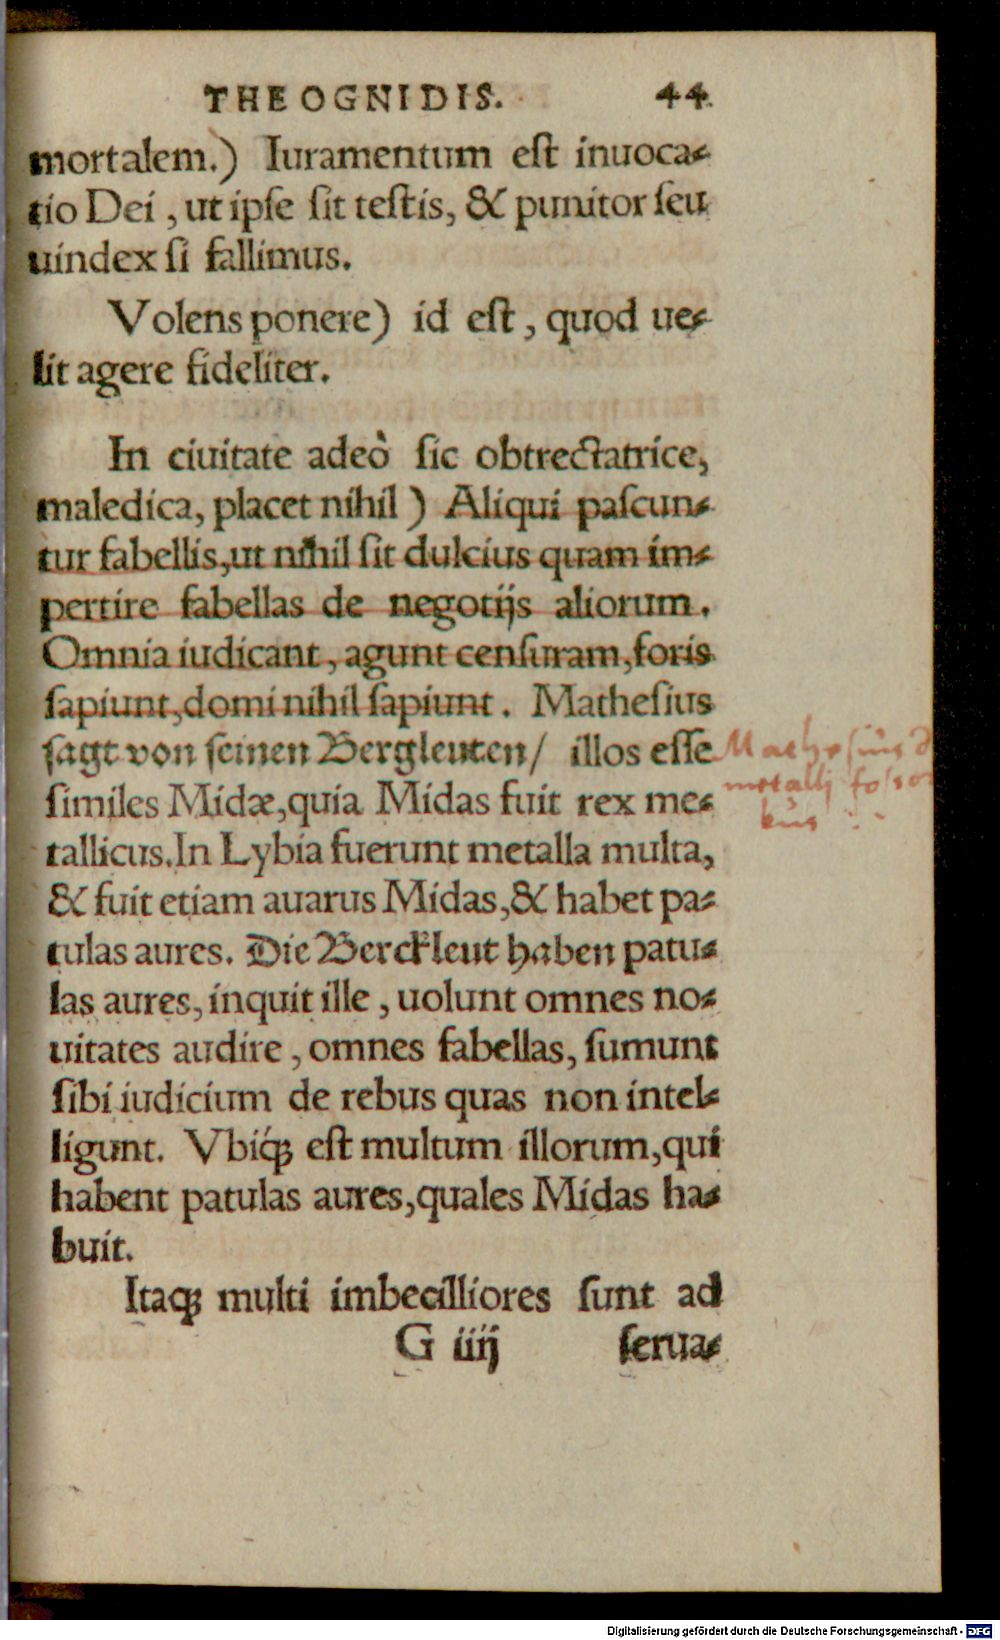 THEOGNIDIS. 44.
mortalem.) Iuramentum est inuoca-
tio Dei, ut ipse sit testis, & punitor seu
uindex si fallimus.
Volens ponere) id est, quod ue-
lit agere fideliter.
In ciuitate adeò sic obtrectatrice,
maledica, placet nihil) Aliqui pascun-
tur fabellis, ut nihil sit dulcius quam im-
pertire fabellas de negotijs aliorum.
Omnia iudicant, agunt censuram, foris
sapiunt, domi nihil sapiunt. Mathesius
sagt von seinen Bergleuten/ illos esse
similes Midæ, quia Midas fuit rex me-
tallicus. In Lybia fuerunt metalla multa,
& fuit etiam auarus Midas, & habet pa-
tulas aures. Die Berckleut haben patu-
las aures, inquit ille, uolunt omnes no-
uitates audire, omnes fabellas, sumunt
sibi iudicium de rebus quas non intel-
ligunt. Vbiq́; est multum illorum, qui
habent patulas aures, quales Midas ha-
buit.
Itaq; multi imbecilliores sunt ad
G iiij serua-
Mathesius d
metalli fosso
bus
Digitalisierung gefördert durch die Deutsche Forschungsgemeinschaft - DFG